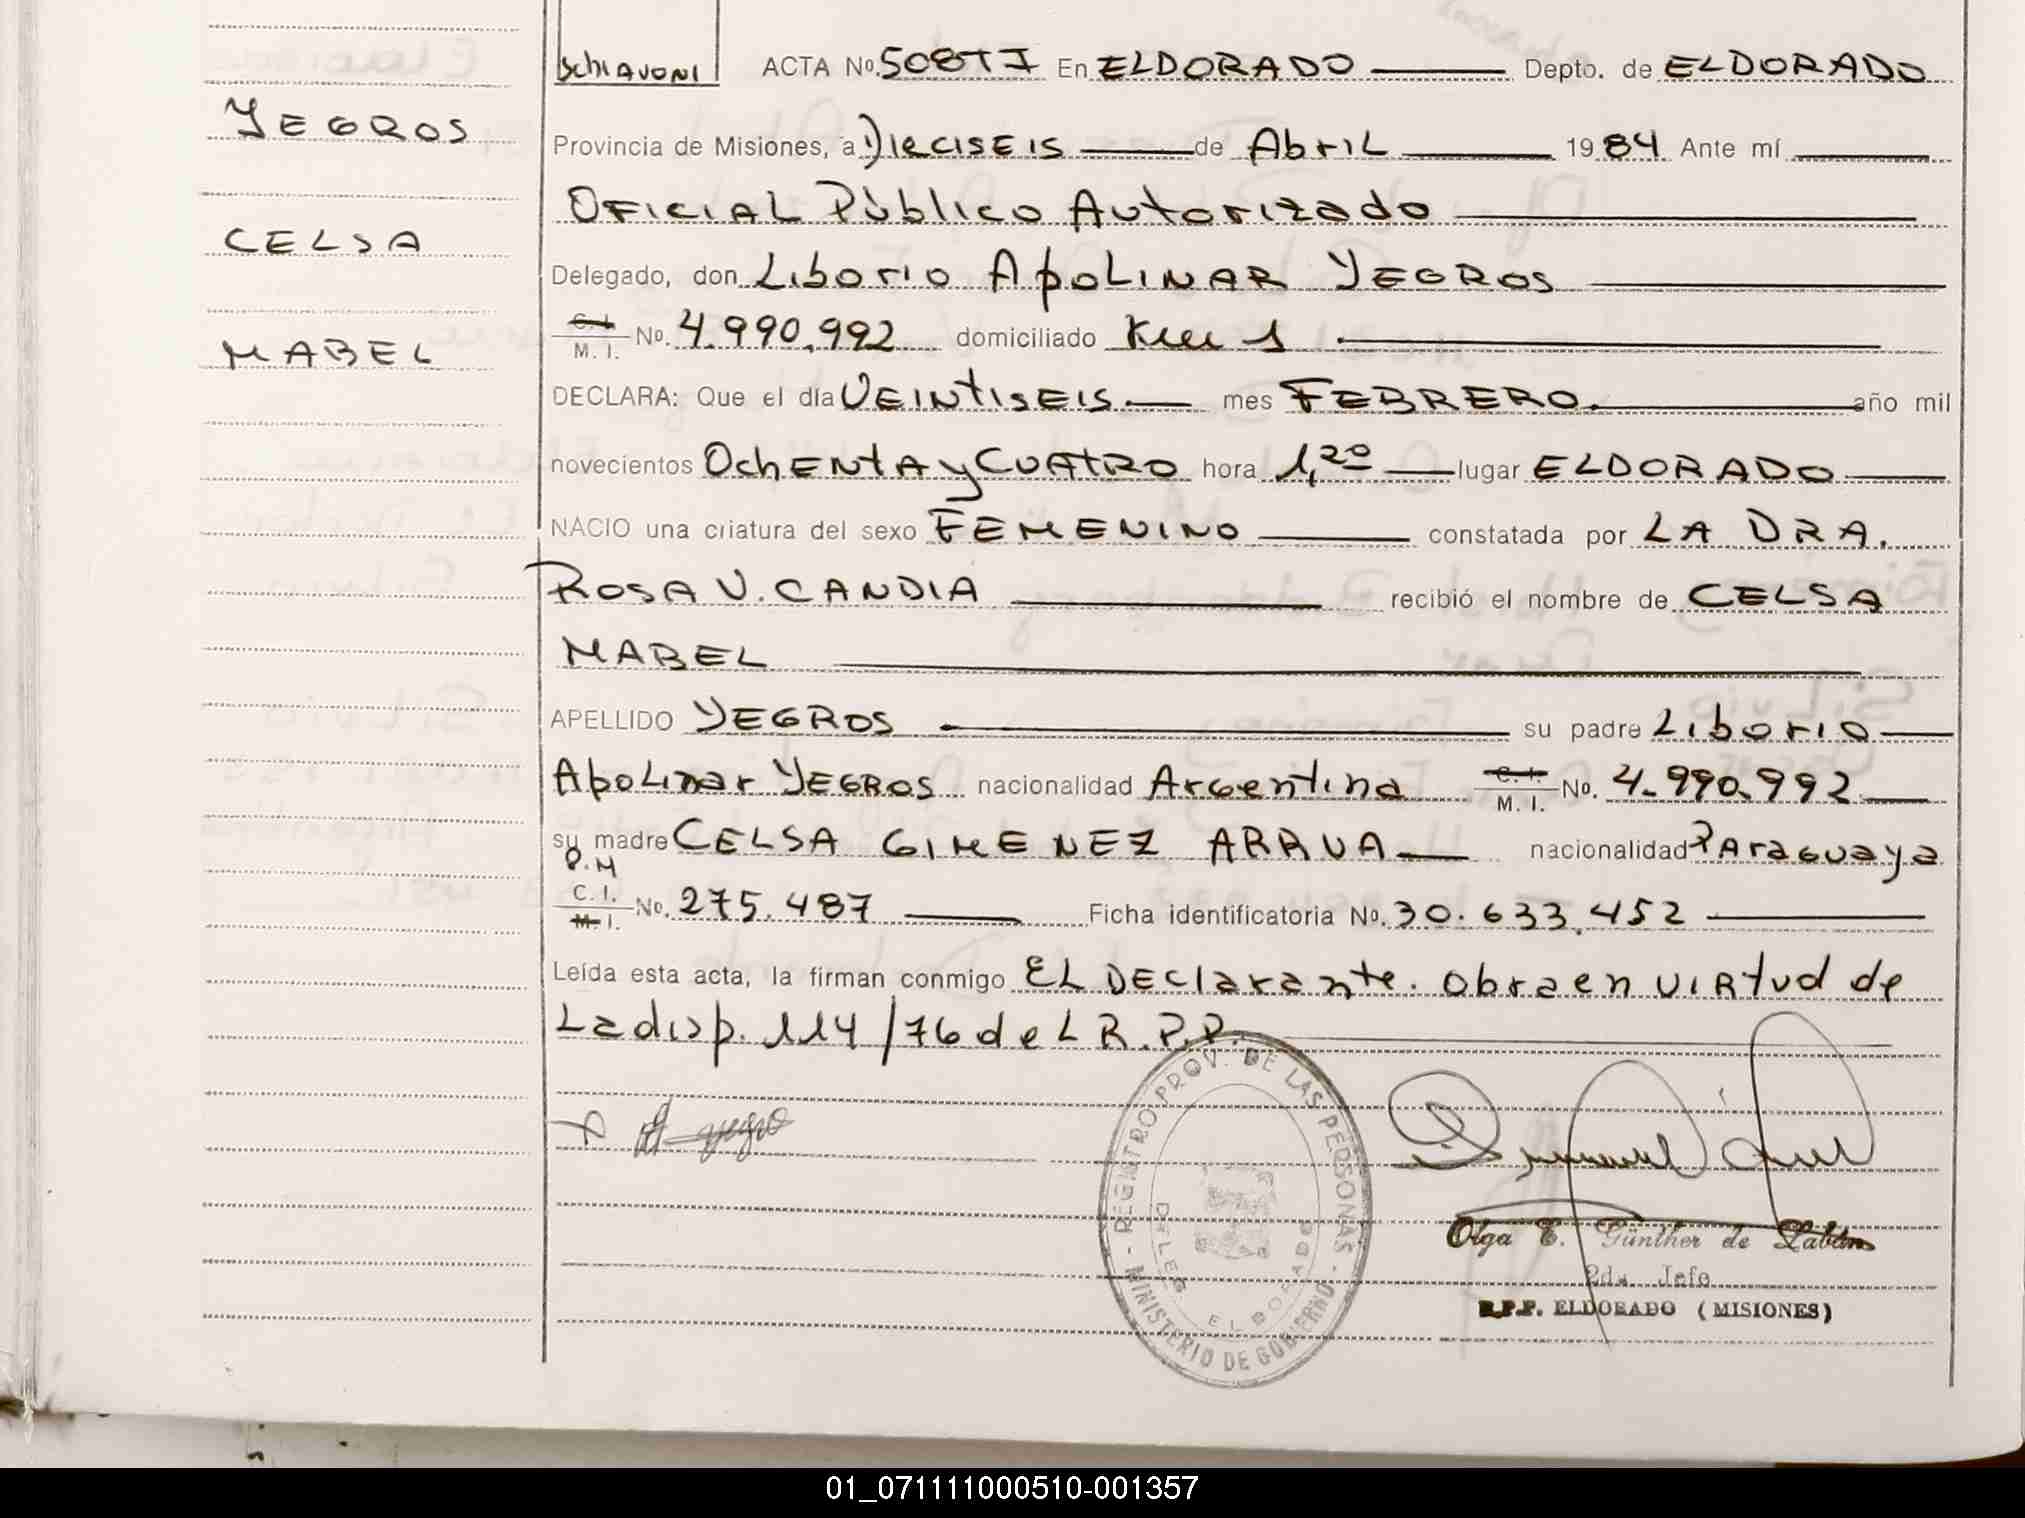 SchiAVONI
ACTA No. 508TI En ELDORADO Depto. de ELDORADO
YEGROS
Provincia de Misiones, a DiECISEIS de Abril 1984 Ante mí
OFICIAL Público Autorizado
CELSA
Delegado, don Liborio ApoLINAR YEGROS
C. I. M. I. No. 4.990.992 domiciliado Km 1
MABEL
DECLARA: Que el día VEINTISEIS. mes FEBRERO. año mil
novecientos OchENtA y CUAtRO hora 1,20 lugar ELDORADO
NACIO una criatura del sexo FEMENINO constatada por LA DRA.
ROSA V. CANDIA recibió el nombre de CELSA
MABEL
APELLIDO YEGROS su padre Liborio
ApoLinar YEGROS nacionalidad Argentina C. I. M. I. No. 4.990.992
su madre CELSA GIMENEZ ARRUA nacionalidad Paraguaya
P.M
C. I. M. I. No. 275.487 Ficha identificatoria No. 30.633.452
Leída esta acta, la firman conmigo EL DEClarante. obra en virtud de
La disp. 114/76 deL R.P.P.
REGISTRO PROV. DE LAS PERSONAS - MINISTERIO DE GOBIERNO -
DELEG ELDORADO
Olga E. Günther de
2da. Jefe
R.P.P. ELDORADO (MISIONES)
01_071111000510-001357